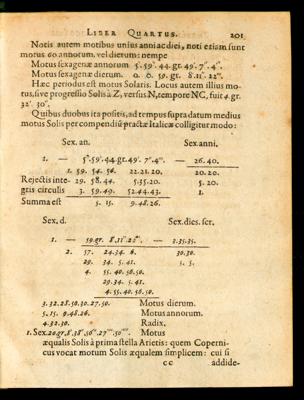 LIBER QUARTUS. 201
Notis autem motibus unius anni ac diei, noti etiam sunt
motus 60 annorum. vel dierum: nempe
Motus sexagenæ annorum 5. 59'. 44. gr. 49'. 7". 4'''.
Motus sexagenæ dierum. 0. 0. 59. gr. 8. 11". 22'''.
Hæc periodus est motus Solaris. Locus autem illius mo-
tus, sive progressio Solis à Z, versus N, tempore NC, fuit 4. gr.
32'. 30".
Quibus duobus ita positis, ad tempus supra datum medius
motus Solis per compendiũ practicæ Italicæ colligitur modo:
Sex. an. Sex. anni.
1. — 5". 59'. 44. gr. 49'. 7". 4'''. — 26. 40.
1. 59. 54. 56. 22. 21. 20. 20. 20.
Rejectis inte- 29. 58. 44. 5. 35. 20. 5. 20.
gris circulis 3. 59. 49. 52. 44. 43. 1.
Summa est 5. 15. 9. 48. 26.
Sex. d. Sex. dies. scr.
1. — 59. gr. 8. 11". 22'''. — 1. 35. 35.
2. 57. 24. 34. 6. 30. 30.
29. 34. 5. 41. 5. 5.
4. 55. 40. 56. 50.
29. 34. 5. 41.
4. 55. 40. 56. 50.
3. 32. 28. 50. 30. 27. 50. Motus dierum.
5. 15. 9. 48. 26. Motus annorum.
4. 32. 30. Radix.
1. Sex. 20. gr. 8'. 38". 56'''. 27''''. 50'''''. Motus
æqualis Solis à prima stella Arietis: quem Coperni-
cus vocat motum Solis æqualem simplicem: cui si
cc addide-